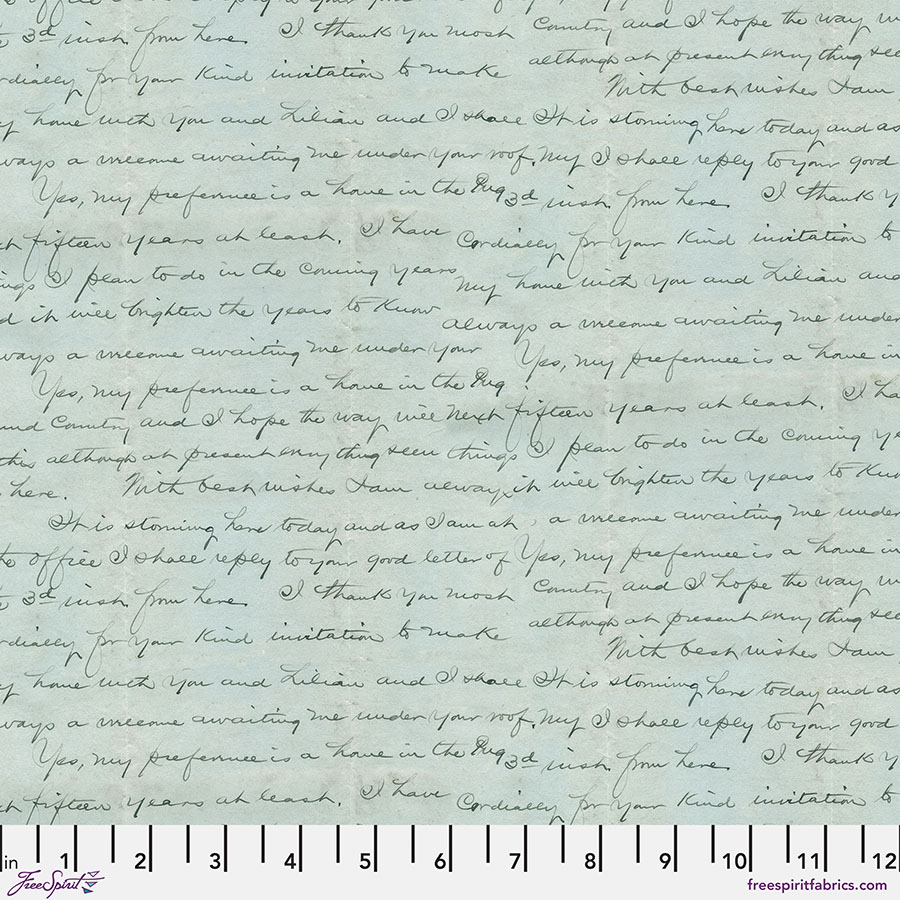 3d inst. from here. I thank you most Country and I hope the way
cordially for your kind invitation to make although at present everything
With best wishes I am
home with you and Lilian and I shall It is storming here today and as
always a welcome awaiting me under your roof. My I shall reply to your good
Yes, my preference is a home in the 3d inst. from here. I thank
fifteen years at least. I have cordially for your kind invitation to
I plan to do in the coming years my home with you and Lilian and
it will brighten the years to know always a welcome awaiting me under
always a welcome awaiting me under your Yes, my preference is a home in
Yes, my preference is a home in the
Country and I hope the way will next fifteen years at least. I ha
this although at present everything seem things I plan to do in the coming
here. With best wishes I am always it will brighten the years to know
It is storming here today and as I am at a welcome awaiting me under
the office I shall reply to your good letter of Yes, my preference is a home in
3d inst. from here. I thank you most Country and I hope the way
cordially for your kind invitation to make although at present everything
With best wishes I am
home with you and Lilian and I shall It is storming here today and as
always a welcome awaiting me under your roof. My I shall reply to your good
Yes, my preference is a home in the 3d inst. from here. I thank
fifteen years at least. I have cordially for your kind invitation to
in 1 2 3 4 5 6 7 8 9 10 11 12
FreeSpirit freespiritfabrics.com